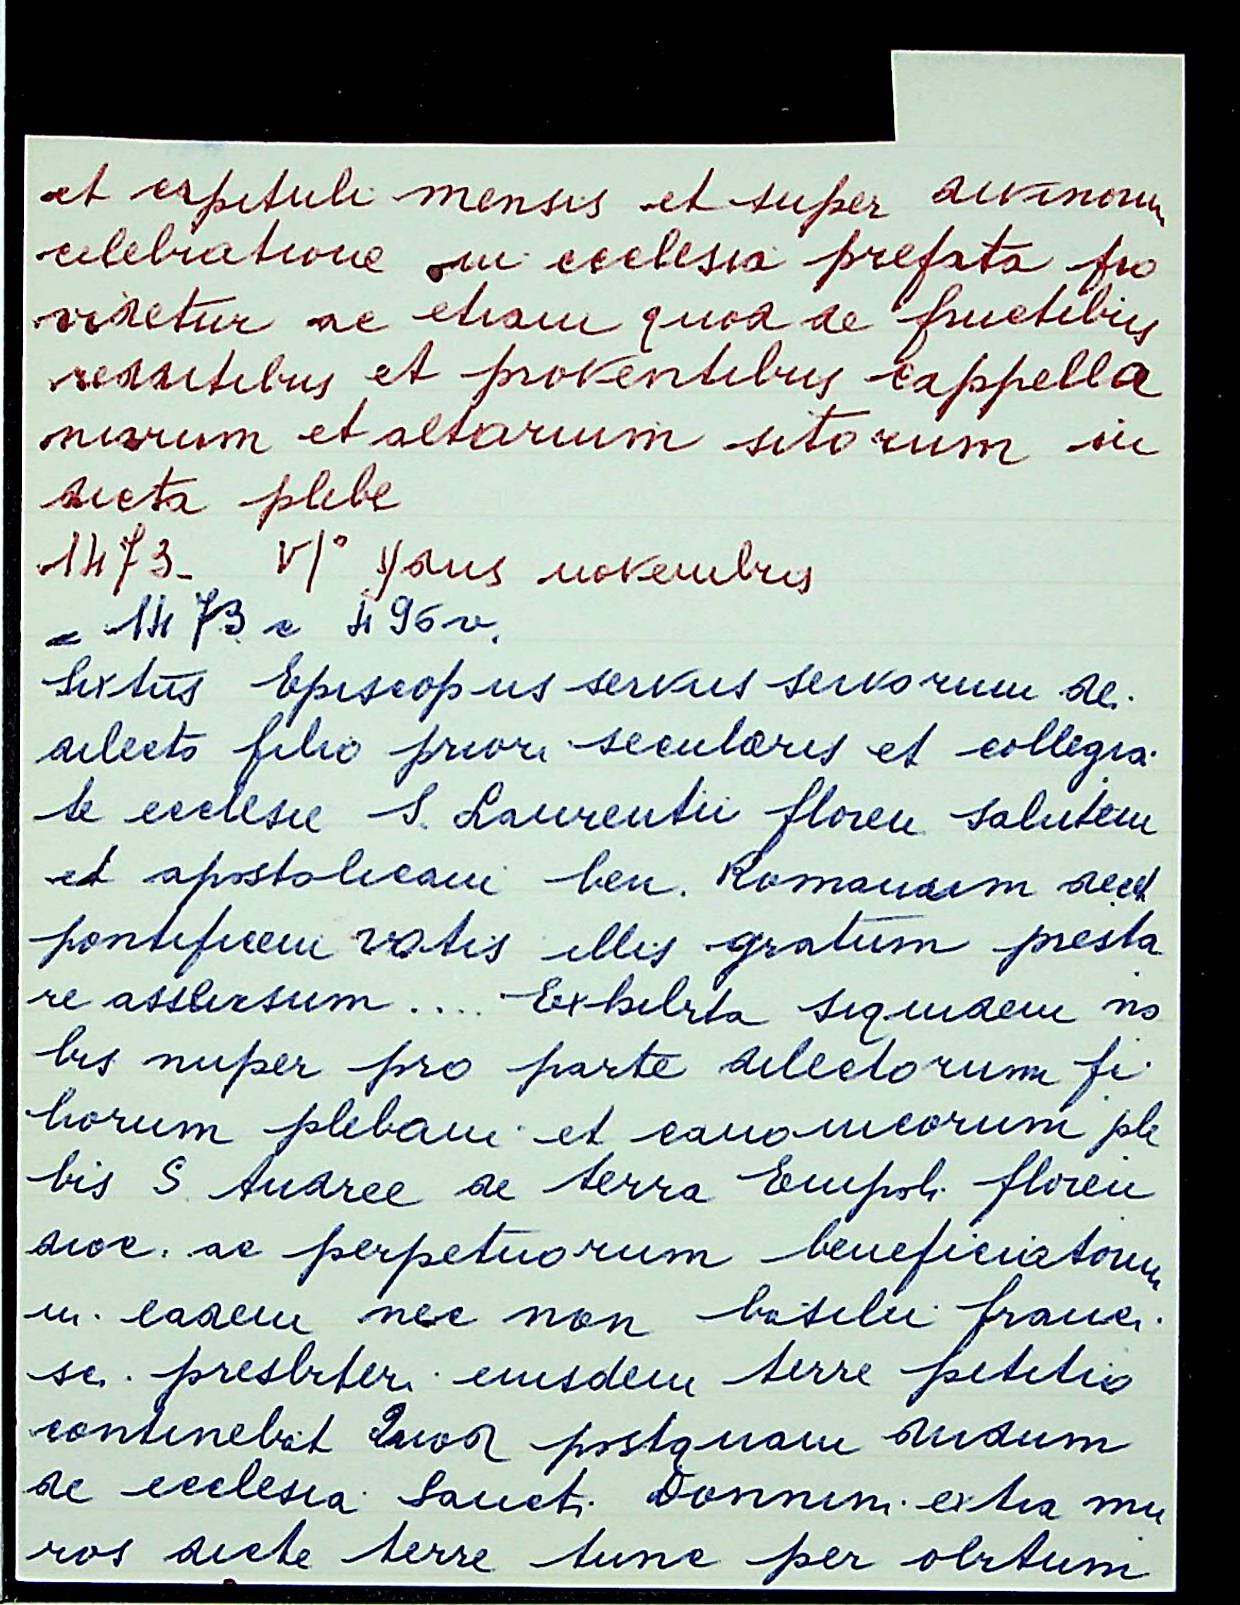 et capituli mensis et super divinorum
celebratione in ecclesia prefata pro
videtur ac etiam quod de fructibus
redditibus et proventibus cappella
niarum et altarium sitorum in
dicta plebe
1473 - VI° ydus novembris
= 1473 c 496 v.
Sixtus Episcopus servus servorum dei
dilecto filio priori secularis et collegia
te ecclesie S. Laurentii floren salutem
et apostolicam ben. Romanum decet
pontificem votis illis gratum presta
re assensum .... Exhibita siquidem no
bis nuper pro parte dilectorum fi
liorum plebani et canonicorum ple
bis S Andree de terra Empoli floren
dioc. ac perpetuorum beneficiatorum
in eadem nec non basilii franci
sci presbiteri eiusdem terre petitio
continebat Quod postquam dudum
de ecclesia Sancti Donnini extra mu
ros dicte terre tunc per obitum